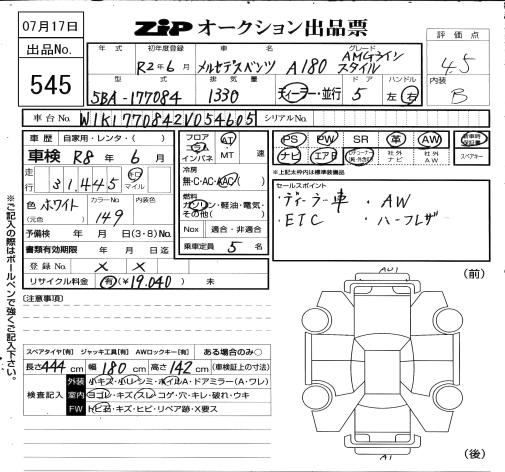 07月17日
ZIP オークション出品票
出品No.
545
評価点
4.5
内装
B
年式 初年度登録 車名 グレード
R2年6月 メルセデスベンツ A180 AMGライン スタイル
型式 排気量 ドア ハンドル
5BA-177084 1330 ディーラー・並行 5 左 右
車台No. W1K1770842V054605 シリアルNo.
車歴 自家用・レンタ・( )
車検 R8年6月
走行 31,445 キロ マイル
色 ホワイト カラーNo. 149 内装色
(元色)
予備検 年 月 日(3・8)No.
書類有効期限 年 月 日迄
登録No. × ×
リサイクル料金 有(¥19.040)無
フロア コラム インパネ AT・MT 速
冷房
無・C・AC・AAC( )
燃料
ガソリン・軽油・電気・その他( )
Nox 適合・非適合
乗車定員 5 名
PS PW SR 革 AW 新車時保証書
ナビ エアB 社外ナビ 社外AW スペアキー
※上記太枠内は標準装備品
セールスポイント
・ディーラー車 ・AW
・ETC ・ハーフレザ
(注意事項)
スペアタイヤ[有] ジャッキ工具[有] AWロックキー[有] ある場合のみ○
長さ 444 cm 幅 180 cm 高さ 142 cm (車検証上の寸法)
検査記入
外装 小キズ・小凹・シミ・ホイルA・ドアミラー(A・ワレ)
室内 ヨゴレ・キズ・スレ・コゲ・穴・キレ・破れ・ウキ
FW トビ石・キズ・ヒビ・リペア跡・X要ス
※ご記入の際はボールペンで強くご記入下さい。
AU1
(前)
A1
(後)